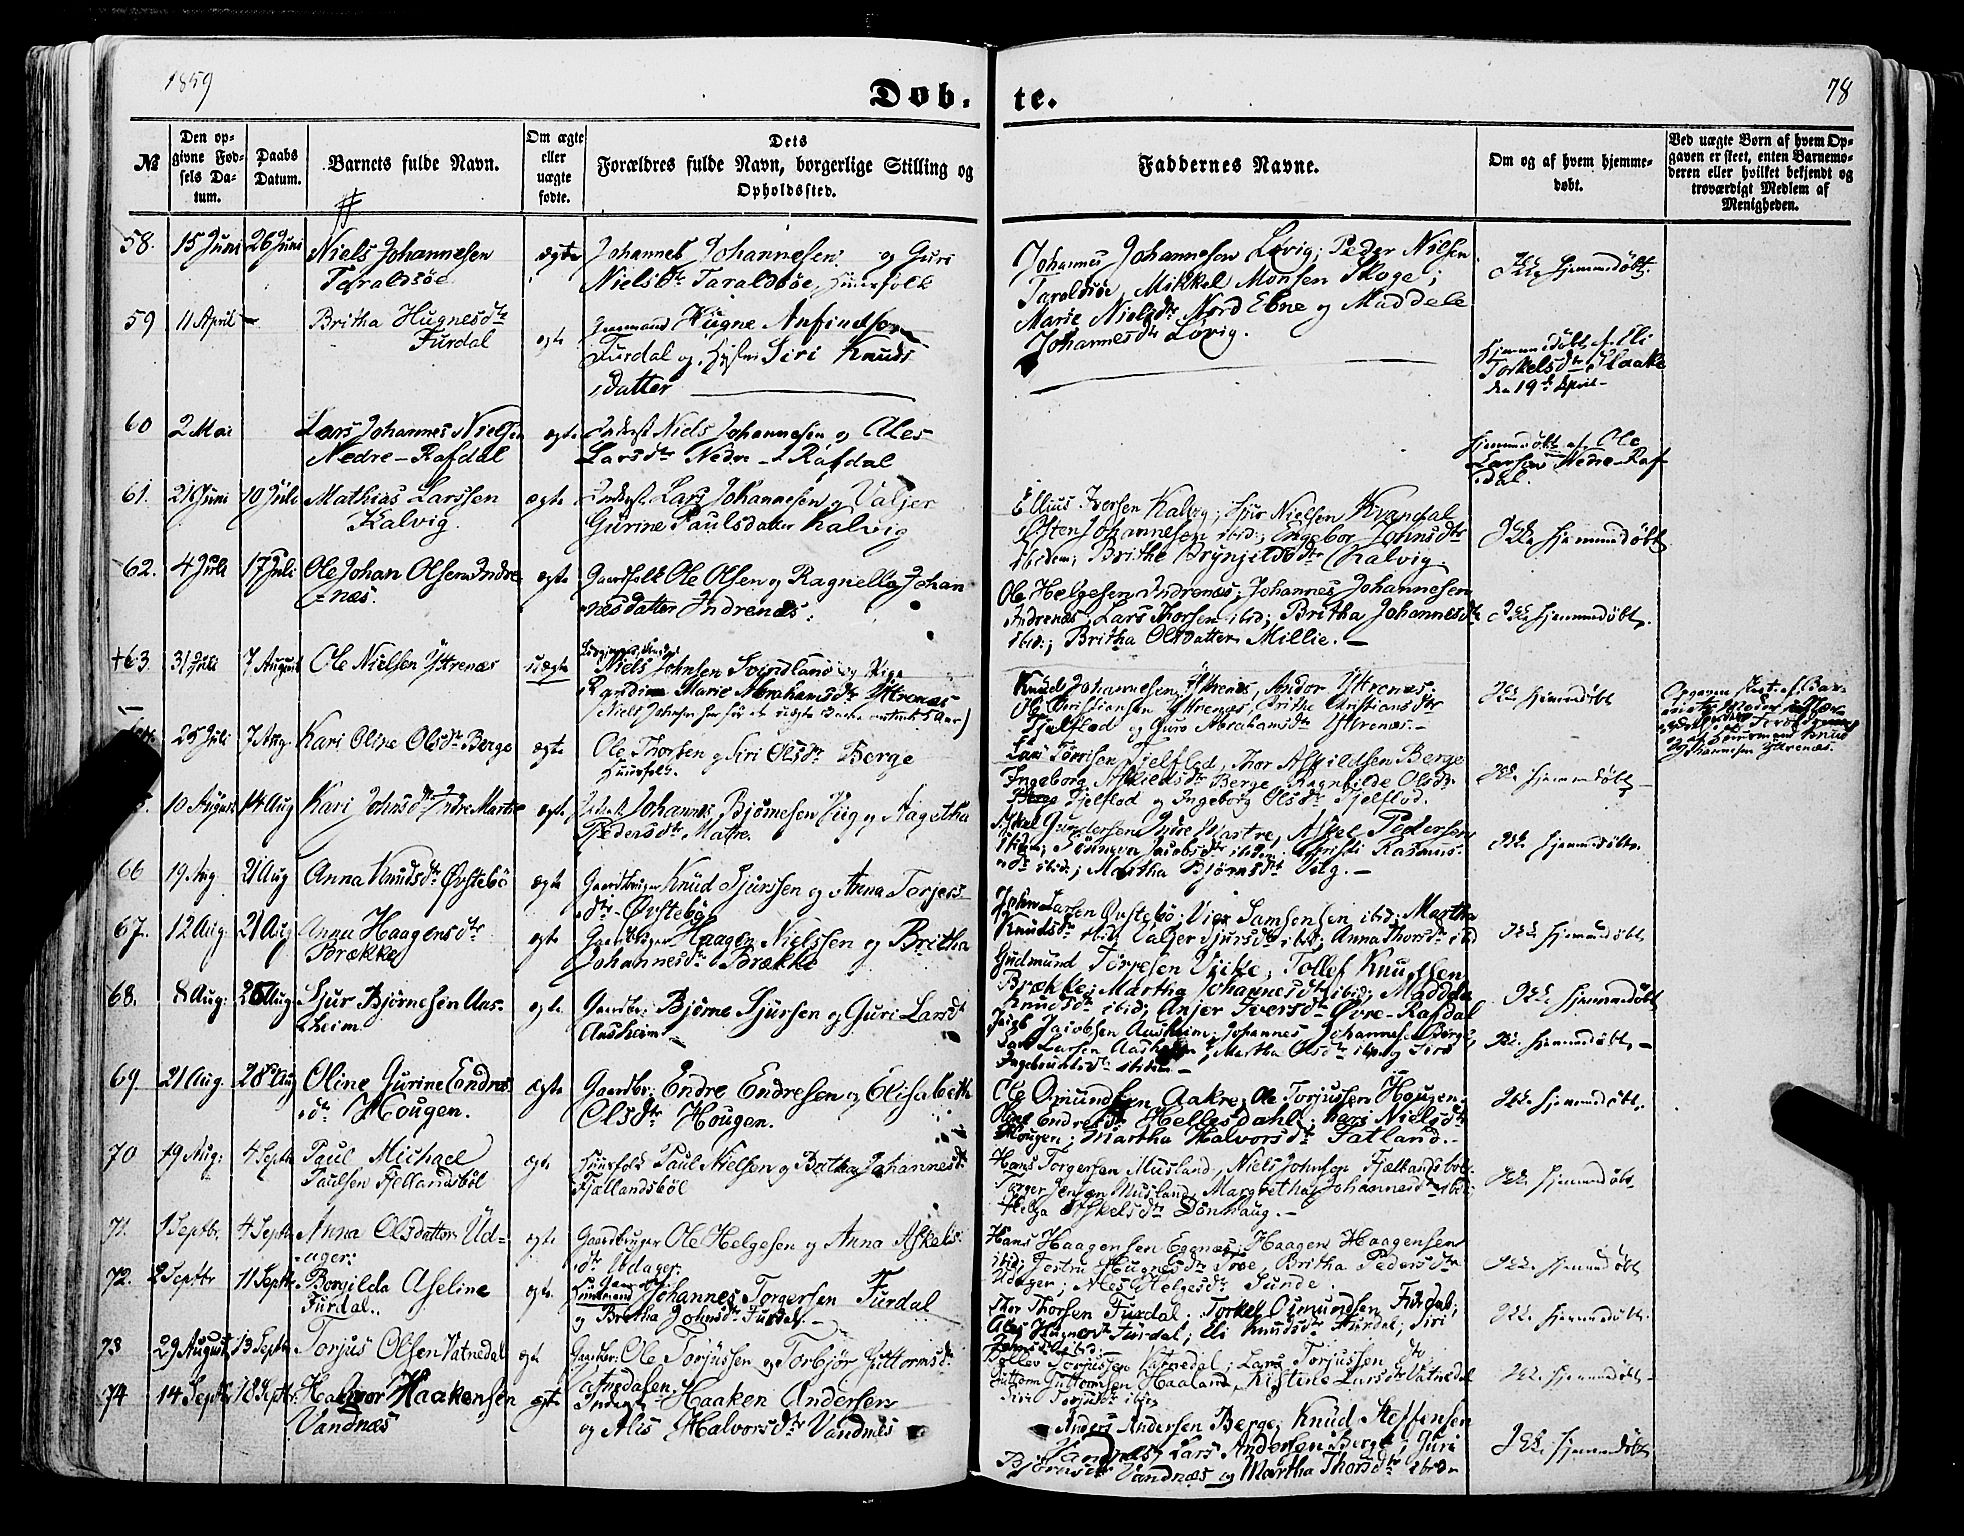 1859
Døb- te.
78
№
Den opgivne Fødsels Datum.
Daabs Datum.
Barnets fulde Navn.
Om ægte eller uægte fødte.
Dets Forældres fulde Navn, borgerlige Stilling og Opholdssted.
Faddernes Navne.
Om og af hvem hjemmedøbt.
Ved uægte Børn af hvem Opgaven er skeet, enten Barnemoderen eller hvilket bekjendt og troværdigt Medlem af Menigheden.
58. 15 Juni 26 Juni Niels Johannesen
Taraldsøe
ægte
Johannes Johannesen og Guri
Nielsdtr Taraldsøe, Huusfolk
Johannes Johannesen Løvig; Peder Nilsen
Taraldsøe, Mikkel Monsen Skoge;
Marie Nielsdtr Nord Ebne og Maddele
Johannesdtr Løvig.
Ikke hjemmedøbt.
59 11 April — Britha Hugnesdtr
Furdal
ægte
Hugne Anfindsen
Furdal og Siri Knuds
datter
Hjemmedøbt af Eli
Torkelsdtr
den 19de April
60 2 Mai Lars Johannes Nielsen
Nedre-Rafdal
ægte
Inderst Niels Johannesen og Ales
Larsdtr Nedre-Rafdal
Hjemmedøbt af Ole
Larsen Nedre-Raf
dal.
61. 21 Juni 10 Juli Mathias Larssen
Kalvig.
ægte
Inderst Lars Johannesen og Valjer
Gurine Paulsdatter Kalvig
Ellius Iversen Kalvig; Sjur Nielsen Kvandal
Østen Johannesen ibid; Engebor Johnsdtr
ibidem; Brithe Brynjelsdtr Kalvig.
Ikke hjemmedøbt
62. 4 Juli 17 Juli Ole Johan Olsen Indre
næs.
ægte
Gaardfolk Ole Olsen og Ragnella Johan
nesdatter Indrenæs.
Ole Helgesen Indrenæs; Johannes Johannesen
Indrenæs, Lars Thorsen ibid; Britha Johannesdtr
ibid; Britha Olsdatter Millie.
Ikke hjemmedøbt.
63. 31 Juli 7 August Ole Nielsen Yttrenæs
uægte
Niels Johnsen Svindland og Pige
Randine Marie Abrahamsdtr Yttrenæs
Knud Johannesen Yttrenæs, Andor Yttrenæs;
Ole Christiansen Yttrenæs, Brithe Christiansdtr
Fjelflod og Guro Abrahamsdtr Yttrenæs.
Ikke hjemmedøbt
Opgaven skeet af Bar-
Knud
Johannesen Yttrenæs.
25 Juli 7 Aug. Kari Oline Olsdtr Berge
ægte
Ole Thorsen og Siri Olsdtr Berge
Huusfolk.
Lars Torrisen Fjelflod, Thor Askildsen Berge
Ingeborg Berge, Ragnhilde Olsdtr
Fjelflod og Ingeborg Olsdtr Fjelflod.
Ikke hjemmedøbt
10 August 14 Aug Kari Johnsdtr Indre Matre
ægte
Inderst Johannes Bjørnesen og Aagetha
Pedersdtr Matre.
Askel Gundersen Indre Matre, Askel Pedersen
ibidem; Sønneva Jacobsdtr ibidem Kristi Rasmus
dtr ibid; Martha Bjørnsdtr
Ikke hjemmedøbt.
66 19 Aug 21 Aug Anna Knudsdtr Øvstebø
ægte
Gaardbruger Knud Sjurssen og Anna Torjers
dtr Øvstebø
John Larsen Øvstebø; Samsonsen ibid; Martha
Knudsdtr ibid; Valjer Sjursdtr ibid; Anna Thorsdtr ibid
Ikke hjemmedøbt
67. 12 Aug. 21 Aug Anna Haagensdtr
Brække
ægte
Gaardbruger Haagen Nielssen og Britha
Johannesdtr Brække
Gudmund Torjesen Vikke; Tollef Knudsen
Brække; Martha Johannesdtr ibid; Maddela
Knudsdtr ibid; Anjer Iversdtr Øvre-Rafdal
Ikke hjemmedøbt
68. 8 Aug. 28 Aug Sjur Bjørnesen Aas-
heim
ægte
Gaardbr: Bjørne Sjursen og Guri Larsdtr
Aasheim
Jacob Jacobsen Aasheim; Johannes Johannesen Berge;
Lars Larsen Aasheim; Martha Olsdtr ibid og Siri
Ikke hjemmedøbt
69 21 Aug. 28 Aug Oline Gurine Endres
dtr Hougen.
ægte
Gaardbr. Endre Endresen og Elisabeth
Olsdtr Hougen.
Ole Omundsen Aakre, Ole Torjussen Hougen.
Endresdtr Hellesdahl; Nielsdtr
Hougen; Martha Halvorsdtr Fatland.
Ikke hjemmedøbt.
70 19 Aug: 4 Septbr Paul Michael
Paulsen Fjellandsbøl
ægte
Huusfolk Paul Nielsen og Britha Johannesdtr
Fjællandsbøl
Hans Torgersen Musland, Niels Johnsen Fjellandsbøl;
Torger Jensen Musland, Margretha Johannesdtr ibid;
Helga Askelsdtr Lønhaug.
Ikke hjemmedøbt.
71. 1 Septbr. 4 Septbr Anna Olsdatter Ud-
ager:
ægte
Gaardbruger Ole Helgesen og Anna Askels-
dtr Udager:
Hans Haagensen Egnæs; Haagen Haagensen
ibid; Jertru Hugnesdtr Troe, Britha Pedersdtr
Udager; Ales Helgesdtr Sunde.
Ikke hjemmedøbt
72. 2 Septbr 11 Septbr Borgilda Aseline
Furdal.
ægte
Huusmand Johannes Torgersen Furdal
og Britha Johnsdtr Furdal.
Thor Thorsen Furdal. Torkel Omundsen Furdal;
Ales Hugnesdtr Furdal; Eli Knudsdtr Furdal; Siri
Johnsdtr ibid.
Ikke hjemmedøbt.
73 29 August 13 Septbr Torjus Olsen Vatnedal
ægte
Gaardbr: Ole Torjussen og Torbjør Guttormsdtr
Vatnedalen
Tollev Torjussen Vatnedal; Lars Torjussen do
Guttorm Guttormsen Haaland, Kistine Larsdtr Vatnedal
Siri Torjusdtr ibid
Ikke hjemmedøbt
74 14 Septbr 18 Septbr. Halvor Haakensen
Vandnæs
ægte
Inderst Haaken Andersen
og Alis Halvorsdtr Vandnæs
Anders Andersen Berge; Knud Steffensen
Vandnæs; Lars Andersen Berge; Guri
Bjørnsdtr Vandnæs og Martha Thorsdtr ibid
Ikke hjemmedøbt